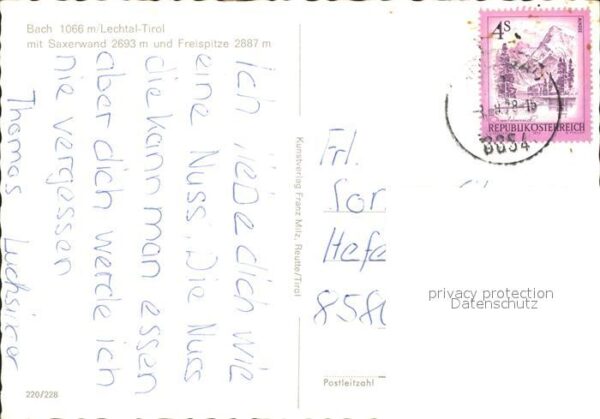 Bach 1066 m/Lechtal-Tirol
mit Saxerwand 2693 m und Freispitze 2887 m
Ich liebe dich wie
eine Nuss. Die Nuss
die kann man essen
aber dich werde ich
nie vergessen
Thomas
220/228
Kunstverlag Franz Milz, Reutte/Tirol
4S
ALMSEE
REPUBLIK ÖSTERREICH
Frl.
Postleitzahl
privacy protection
Datenschutz